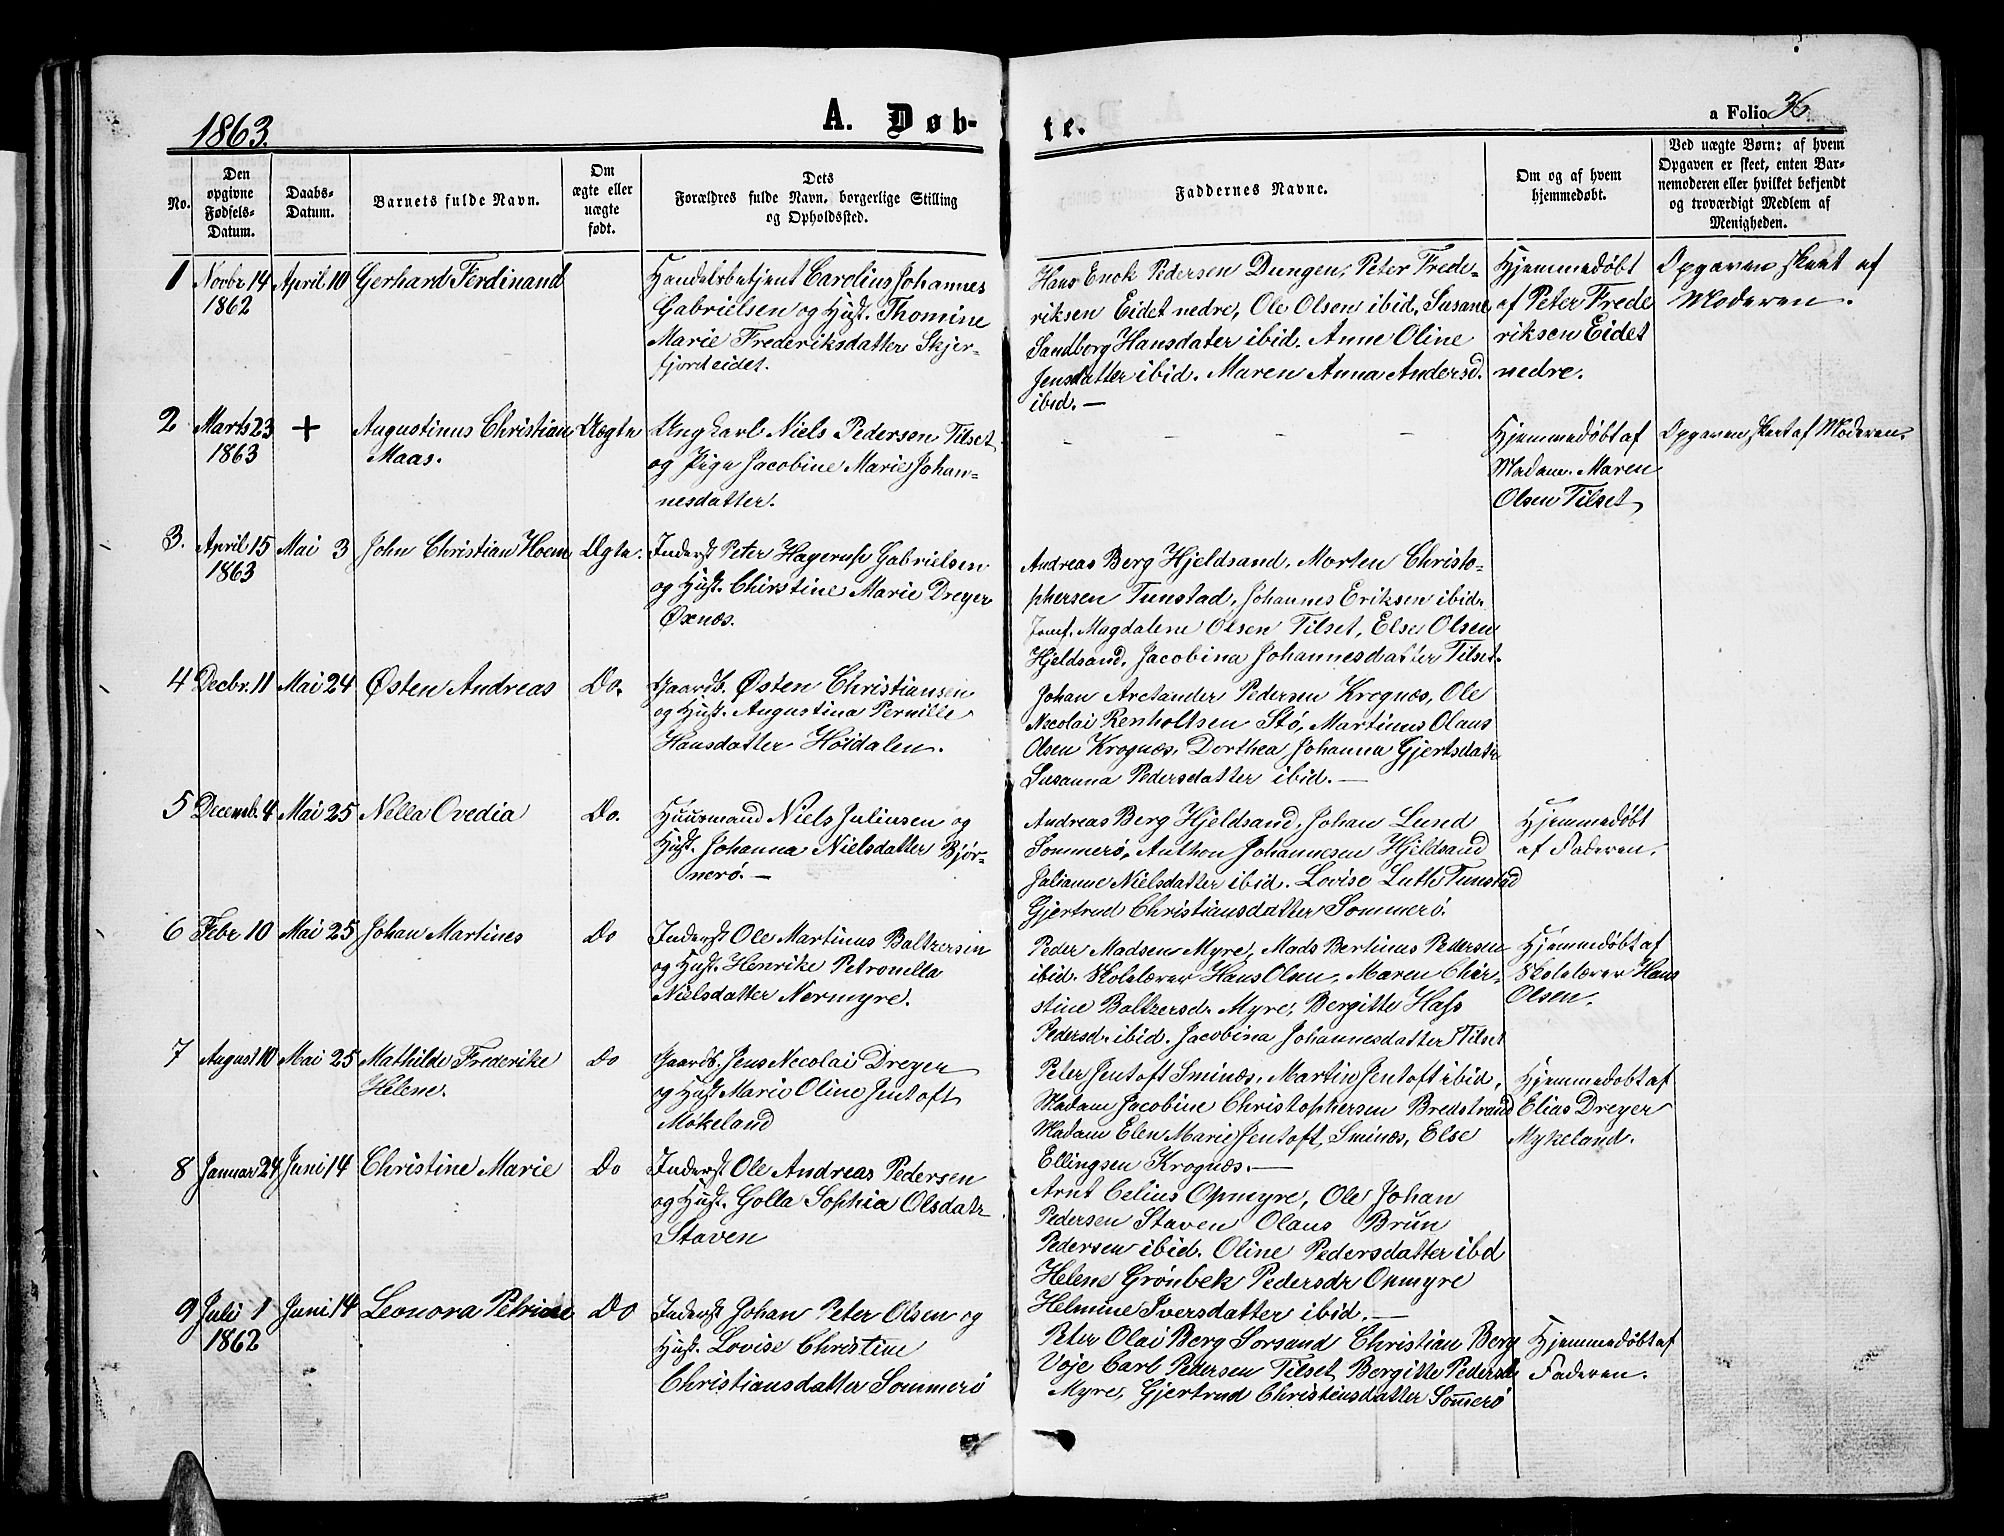 1863.
A. Døb-
te.
a Folio 36
No.
Den
opgivne
Fødsels-
Datum.
Daabs-
Datum.
Barnets fulde Navn.
Om
ægte eller
uægte
født.
Dets
Forældres fulde Navn, borgerlige Stilling
og Opholdssted.
Faddernes Navne.
Om og af hvem
hjemmedøbt.
Ved uægte Børn: af hvem
Opgaven er skeet, enten Bar-
nemoderen eller hvilket bekjendt
og troværdigt Medlem af
Menigheden.
1
Novbr 14
1862
April 10
Gerhard Ferdinand
Handelsbetjent Carolius Johannes
Gabrielsen og Hust. Thomine
Marie Frederiksdatter Skjer-
fjordeidet.
Hans Enok Pedersen Dungen, Peter Frede-
riksen Eidet nedre, Ole Olsen ibid, Susane
Sandborg Hansdater ibid. Anne Oline
Jensdatter ibid. Maren Anna Andersd.
ibid. —
Hjemmedøbt
af Peter Frede
riksen Eidet
nedre.
Opgaven skeet af
Moderen.
2
Marts 23
1863
+
Augustinus Christian
Maas.
Uægte
Ungkarl Niels Pedersen Tilset
og Pige Jacobine Marie Johan-
nesdatter.
– – – – –
Hjemmedøbt af
Madam. Maren
Olsen Tilset,
Opgaven skeet af Moderen.
3.
April 15
1863
Mai 3
John Christian Hoem
Ægte.
Inderst Peter Hagerup Gabrielsen
og Hust. Chirstine Marie Dreyer
Øxnæs.
Andreas Berg Hjeldsand, Morten Christo-
phersen Tunstad, Johannes Eriksen ibid.
Jomf. Magdalene Olsen Tilset, Else Olsen
Hjeldsand, Jacobina Johannesdatter Tilset.
4
Decbr. 11
Mai 24
Østen Andreas
Do.
Gaardb. Østen Christiansen
og Hust. Augustina Pernille
Hansdatter Høidalen.
Johan Arctander Pedersen Krognæs, Ole
Nicolai Renholtsen Stø, Martinus Olaus
Olsen Krognæs, Dorthea Johanna Gjertsdatr
Susanna Pedersdatter ibid. —
5
Decemb. 4
Mai 25
Nella Ovedia
Do.
Huusmand Niels Juliusen og
Hust. Johanna Nielsdatter Bjør-
nerø. —
Andreas Berg Hjeldsand, Johan Lund
Sommerø, Anthon Johannesen Hjeldsand
Julianne Nielsdatter ibid. Lovise Luth Tunstad
Gjertrud Christiansdatter Sommerø.
Hjemmedøbt
af Faderen.
6
Febr 10
Mai 25
Johan Martines
Do
Inderst Ole Martinus Baltzersen
og Hust. Henrike Petronella
Nielsdatter Nermyre.
Peder Madsen Myre, Mads Bertinus Pedersen
ibid. Skolelærer Hans Olsen, Maren Chir-
stine Baltzersd. Myre, Bergitte Hass
Pedersd. ibid. Jacobina Johannesdatter Tilset
Hjemmedøbt af
Skolelærer Hans
Olsen.
7
August 10
Mai 25
Mathilde Frederike
Helene.
Do
Gaardb. Jens Nicolai Dreyer
og Hust Marie Oline Jentoft
Mökeland
Peter Jentoft Sminæs, Martin Jentoft ibid,
Madam Jacobine Christophersen Bredstrand
Madam Elen Marie Jentoft, Sminæs, Else
Ellingsen Krognæs. —
Hjemmedøbt af
Elias Dreyer
Mykeland.
8
Januar 24
Juni 14
Christine Marie
Do
Inderst Ole Andreas Pedersen
og Hust. Golla Sophia Olsdatr
Staven
Arnt Celius Opmyre, Ole Johan
Pedersen Staven Olaus Brun
Pedersen ibid. Oline Pedersdatter ibd
Helene Grönbek Pedersdr Opmyre
Helmine Iversdatter ibid. —
9
Juli 1
1862
Juni 14
Leonora Petrine
Do
Inderst Johan Peter Olsen og
Hust. Lovise Christine
Christiansdatter Sommerø
Peter Olai Berg Sorsand Christian Berg
Voje Carl Pedersen Tilset, Bergitte Pedersd
Myre, Gjertrud Christensdatter Som̄erö
Hjemmedøbt af
Faderen.